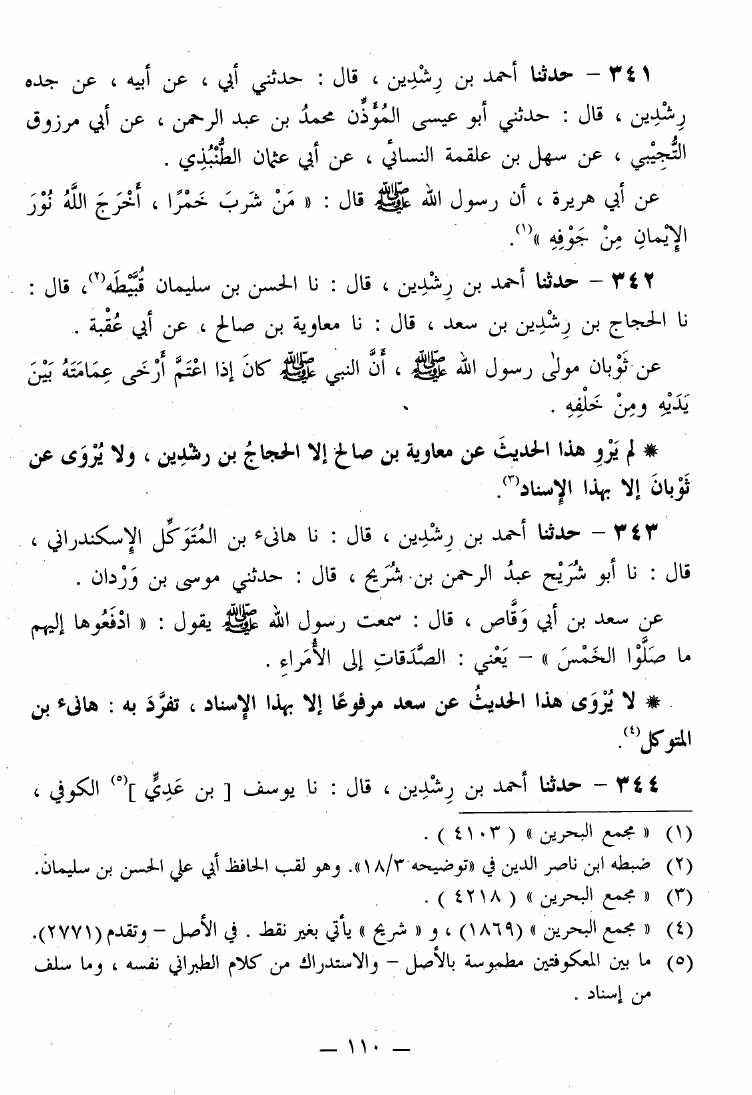 ٣٤١ – حدثنا أحمد بن رِشْدِين ، قال : حدثني أبي ، عن أبيه ، عن جده
رِشْدِين ، قال : حدثني أبو عيسى المُؤَذِّن محمدُ بن عبد الرحمن ، عن أبي مرزوق
التُّجِيْبي ، عن سهل بن علقمة النسائي ، عن أبي عثمان الطُّنْبُذي .
عن أبي هريرة ، أن رسول الله ﷺ قال : « مَنْ شَرِبَ خَمْرًا ، أَخْرَجَ اللَّهُ نُوْرَ
الإِيْمانِ مِنْ جَوْفِهِ »(١).
٣٤٢ – حدثنا أحمد بن رِشْدِين ، قال : نا الحسن بن سليمان قُبَّيْطَه(٢)، قال :
نا الحجاج بن رِشْدِين بن سعد ، قال : نا معاوية بن صالح ، عن أبي عُقْبة .
عن ثَوْبان مولىٰ رسول الله ﷺ ، أَنَّ النبي ﷺ كانَ إذا اعْتَمَّ أَرْخَى عِمَامَتَهُ بَيْنَ
يَدَيْهِ ومِنْ خَلْفِهِ .
* لم يَرْوِ هذا الحديثَ عن معاوية بن صالح إلا الحجاجُ بن رشْدِين ، ولا يُرْوَى عن
ثَوْبانَ إلا بهذا الإسناد(٣).
٣٤٣ – حدثنا أحمد بن رِشْدِين ، قال : نا هانىء بن المُتَوَكِّل الإسكندراني ،
قال : نا أبو شُرَيْح عبدُ الرحمن بن شُرَيح ، قال : حدثني موسى بن وَرْدان .
عن سعد بن أبي وَقَّاص ، قال : سمعت رسول الله ﷺ يقول : « ادْفَعُوها إليهم
ما صَلَّوْا الخَمْسَ » – يَعْني : الصَّدَقاتِ إلى الأُمَراءِ .
* لا يُرْوَى هذا الحديثُ عن سعد مرفوعًا إلا بهذا الإسناد ، تفرَّدَ به : هانىء بن
المتوكل(٤).
٣٤٤ – حدثنا أحمد بن رِشْدِين ، قال : نا يوسف [ بن عَدِيٍّ ](٥) الكوفي ،
(١) « مجمع البحرين » ( ٤١٠٣ ) .
(٢) ضبطه ابن ناصر الدين في «توضيحه ١٨/٣». وهو لقب الحافظ أبي علي الحسن بن سليمان.
(٣) « مجمع البحرين » ( ٤٢١٨ ) .
(٤) « مجمع البحرين » (١٨٦٩) ، و « شريح » يأتي بغير نقط . في الأصل – وتقدم (٢٧٧١).
(٥) ما بين المعكوفتين مطموسة بالأصل – والاستدراك من كلام الطبراني نفسه ، وما سلف
من إسناد .
— ١١٠ —